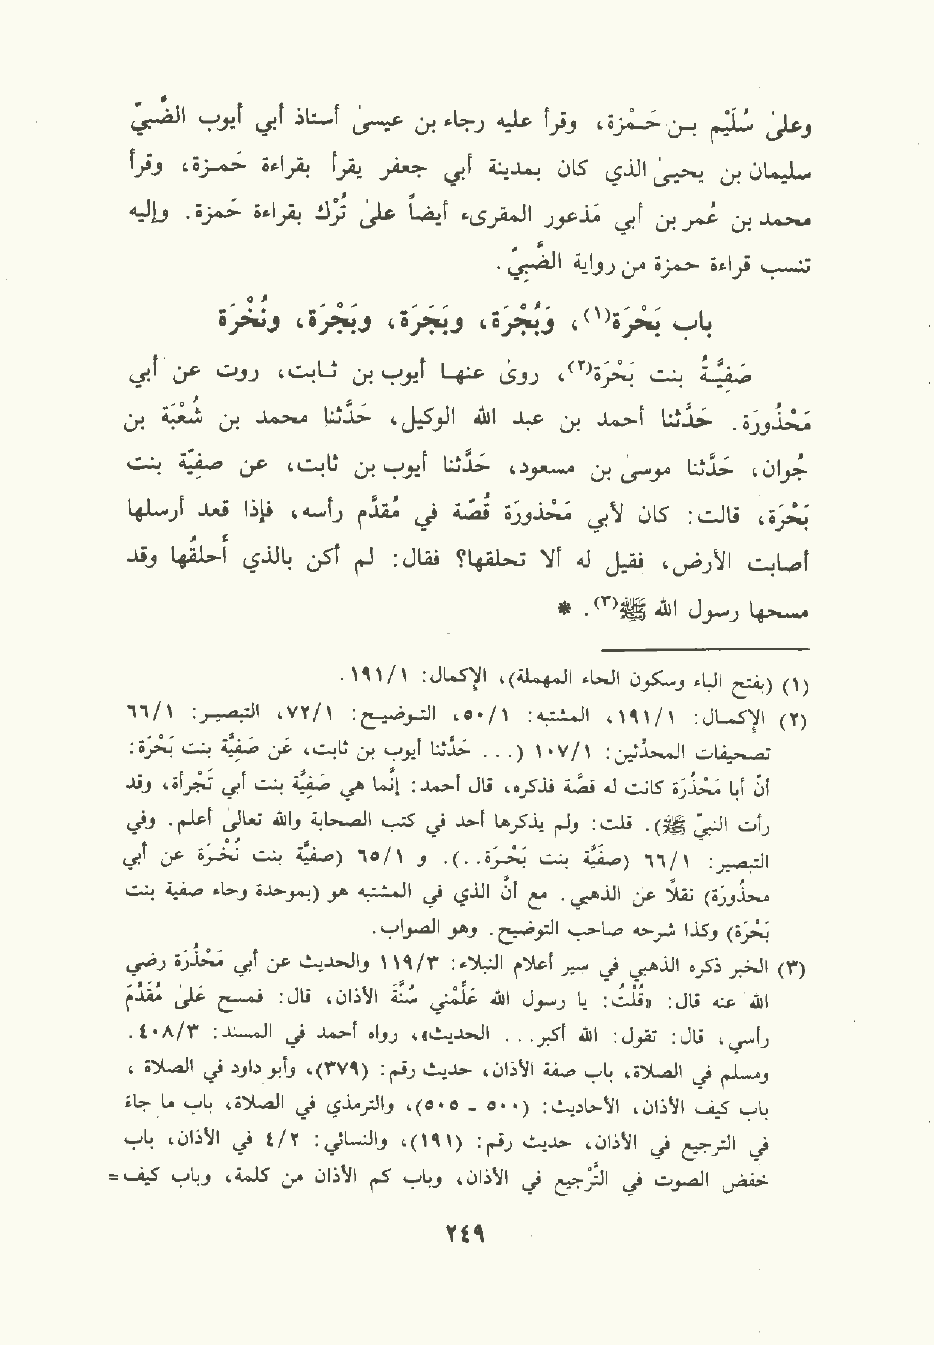 وعلىٰ سُلَيْم بن حَمْزة، وقرأ عليه رجاء بن عيسىٰ أستاذ أبي أيوب الضَّبيّ
سليمان بن يحيىٰ الذي كان بمدينة أبي جعفر يقرأ بقراءة حَمزة، وقرأ
محمد بن عُمر بن أبي مَذعور المقرىء أيضاً علىٰ تُرْك بقراءة حَمزة. وإليه
تنسب قراءة حمزة من رواية الضَّبيّ.
باب بَحْرَة(١)، وَبُجْرَة، وبَجْرَة، وبَجْرَة، ونُخْرَة
صَفيَّـة بنت بَحْرَة(٢)، روىٰ عنهـا أيوب بن ثـابت، روت عن أبي
مَحْذُورَة. حدَّثنا أحمد بن عبد الله الوكيل، حدَّثنا محمد بن شُعْبَة بن
جُوان، حدَّثنا موسىٰ بن مسعود، حدَّثنا أيوب بن ثابت، عن صفيَّة بنت
بَحْرَة، قالت: كان لأبي مَحْذورَة قُصَّة في مُقدَّم رأسه، فإذا قعد أرسلها
أصابت الأرض، فقيل له ألا تحلقها؟ فقال: لم أكن بالذي أُحلقُها وقد
مسحها رسول الله ﷺ(٣). *
(١) (بفتح الباء وسكون الحاء المهملة)، الإكمال: ١/ ١٩١.
(٢) الإكمال: ١٩١/١، المشتبه: ٥٠/١، التوضيح: ٧٢/١، التبصير: ٦٦/١
تصحيفات المحدّثين: ١٠٧/١ (... حدّثنا أيوب بن ثابت، عن صفيَّة بنت بَحْرَة:
أنّ أبا مَحْذُرَة كانت له قصّة فذكره، قال أحمد: إنَّما هي صَفيَّة بنت أبي تَجْرأة، وقد
رأت النبيّ ﷺ). قلت: ولم يذكرها أحد في كتب الصحابة والله تعالىٰ أعلم. وفي
التبصير: ٦٦/١ (صفيَّة بنت بَحْرة..). و ٦٥/١ (صفيَّة بنت نُخْرة عن أبي
محذُورَة) نقلاً عن الذهبي. مع أنَّ الذي في المشتبه هو (بموحدة وحاء صفية بنت
بَحْرَة) وكذا شرحه صاحب التوضيح. وهو الصواب.
(٣) الخبر ذكره الذهبي في سير أعلام النبلاء: ١١٩/٣ والحديث عن أبي مَحْذُرَة رضي
الله عنه قال: «قُلْتُ: يا رسول الله عَلِّمْني سُنَّة الأذان، قال: فمسح علىٰ مُقَدَّم
رأسي، قال: تقول: الله أكبر... الحديث»، رواه أحمد في المسند: ٤٠٨/٣.
ومسلم في الصلاة، باب صفة الأذان، حديث رقم: (٣٧٩)، وأبو داود في الصلاة ،
باب كيف الأذان، الأحاديث: (٥٠٠ - ٥٠٥)، والترمذي في الصلاة، باب ما جاء
في الترجيع في الأذان، حديث رقم: (١٩١)، والنسائي: ٤/٢ في الأذان، باب
خفض الصوت في التَّرجيع في الأذان، وباب كم الأذان من كلمة، وباب كيف =
٢٤٩